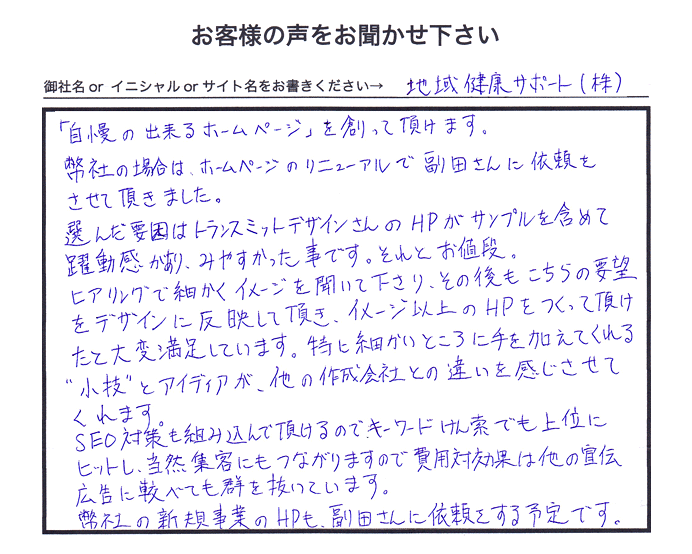 お客様の声をお聞かせ下さい
御社名 or イニシャル or サイト名をお書きください→ 地域健康サポート(株)
「自慢の出来るホームページ」を創って頂けます。
弊社の場合は、ホームページのリニューアルで副田さんに依頼を
させて頂きました。
選んだ要因はトランスミットデザインさんのHPがサンプルを含めて
躍動感があり、みやすかった事です。それとお値段。
ヒアリングで細かくイメージを聞いて下さり、その後もこちらの要望
をデザインに反映して頂き、イメージ以上のHPをつくって頂け
たと大変満足しています。特に細かいところに手を加えてくれる
"小技"とアイディアが、他の作成会社との違いを感じさせて
くれます。
SEO対策も組み込んで頂けるので、キーワードけん索でも上位に
ヒットし、当然集客にもつながりますので費用対効果は他の宣伝
広告に較べても群を抜いています。
弊社の新規事業のHPも、副田さんに依頼をする予定です。